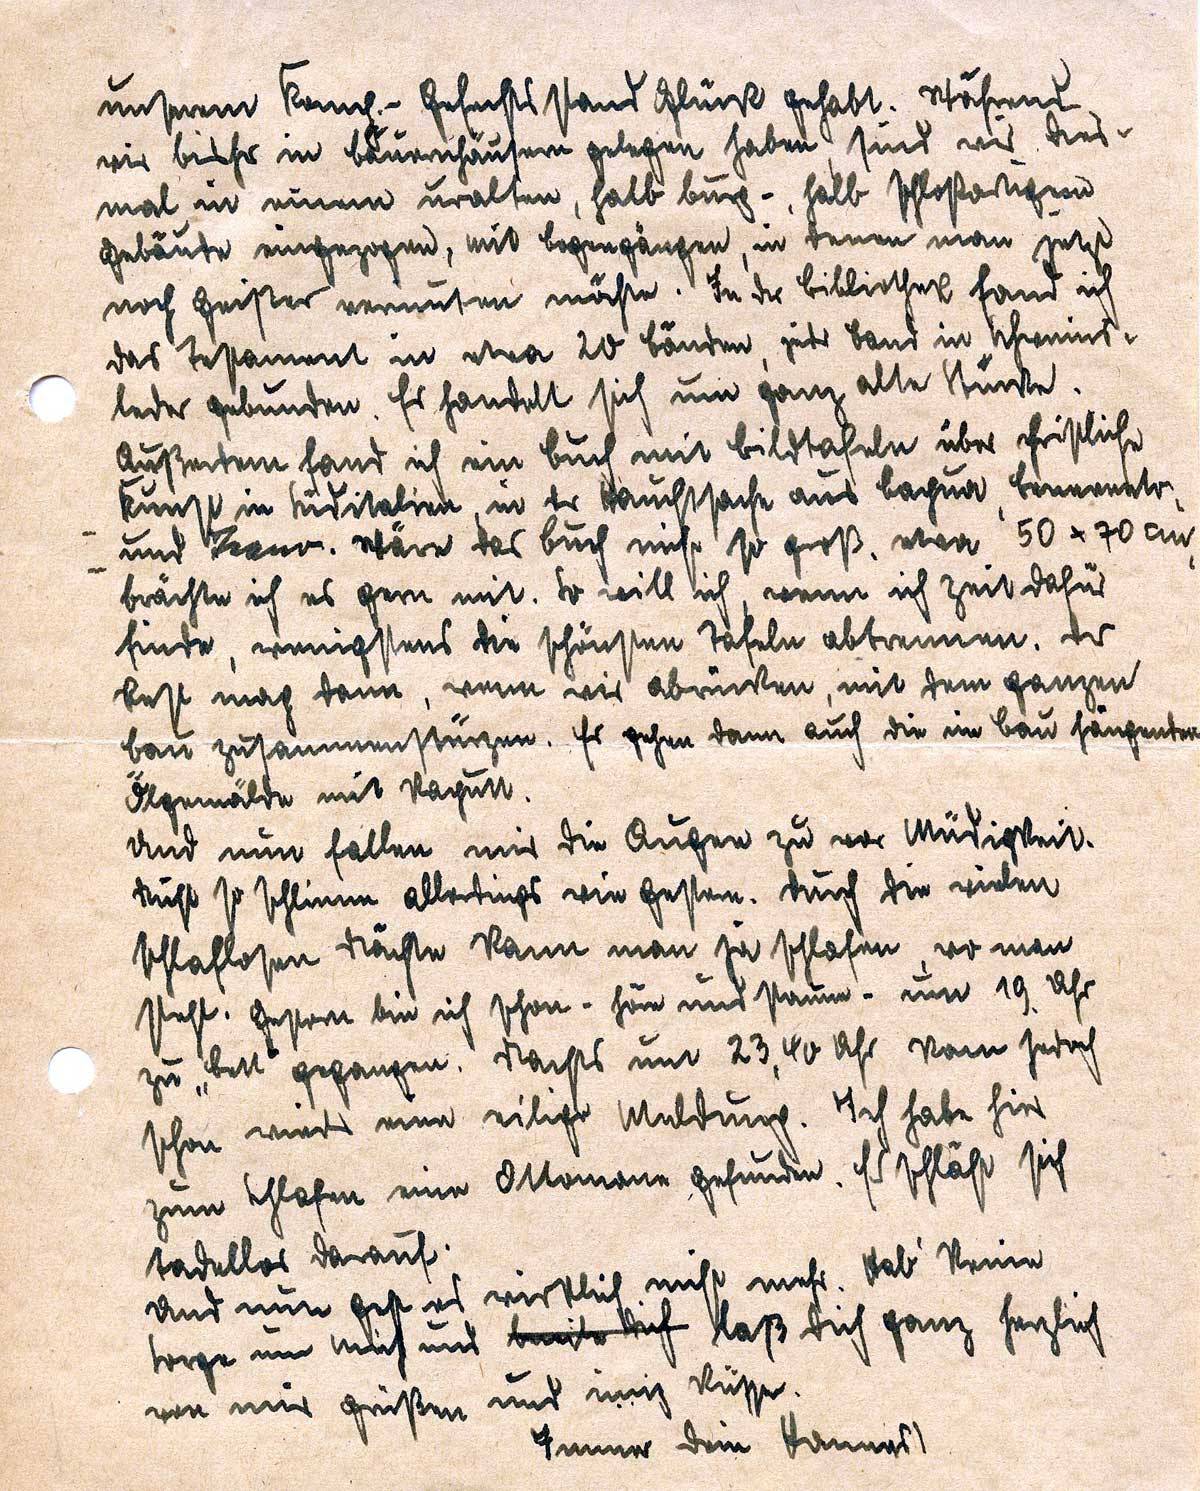 unserem Komp.- Gefechtsstand Glück gehabt. Während
wir bisher in Bauernhäusern gelegen haben, sind wir dies-
mal in einem uralten, halb burg-, halb schloßartigem
Gebäude eingezogen, mit Bogengängen, in denen man jetzt
noch Geister vermuten möchte. In der Bibliothek fand ich
das Testament in etwa 20 Bänden, jeder Band in Schweins-
leder gebunden. Es handelt sich um ganz alte Stücke.
Außerdem fand ich ein Buch mit Bildtafeln über christliche
Kunst in Süditalien, in der Hauptsache aus Capua, Benevento,
und Teano. Wäre das Buch nicht so groß, etwa 50 x 70 cm,
brächte ich es gern mit. So will ich, wenn ich Zeit dafür
finde, wenigstens die schönsten Tafeln abtrennen. Der
Rest mag dann, wenn wir abrücken, mit dem ganzen
Bau zusammenstürzen. Es gehen dann auch die im Bau hängenden
Ölgemälde mit kaputt.
Und nun fallen mir die Augen zu vor Müdigkeit.
Nicht so schlimm allerdings wie gestern. Durch die vielen
schlaflosen Nächte kann man ja schlafen, wo man
steht. Gestern bin ich schon - höre und staune - um 19 Uhr
zu „Bett" gegangen. Nachts um 23,40 Uhr kam jedoch
schon wieder eine eilige Meldung. Ich habe hier
zum Schlafen eine Ottomane gefunden. Es schläft sich
tadellos darauf.
Und nun geht es wirklich nicht mehr. Hab' keine
Sorge um mich und laß Dich ganz herzlich
von mir grüßen und innig küssen.
Immer Dein Hannes!